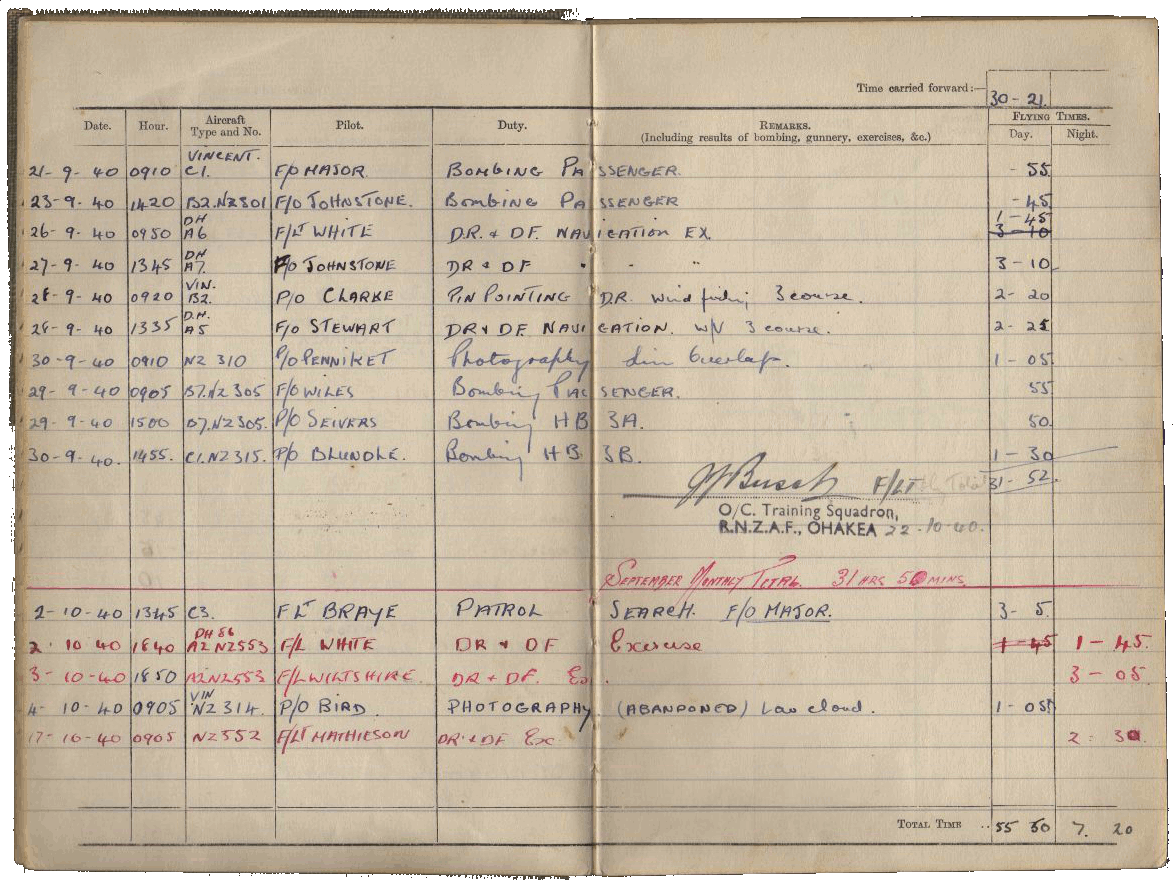 Time carried forward:— 30 - 21.
Date. Hour. Aircraft Type and No. Pilot. Duty. REMARKS. (Including results of bombing, gunnery, exercises, &c.) FLYING TIMES. Day. Night.
21- 9 - 40 0910 VINCENT. C1. F/O MAJOR. BOMBING PASSENGER. - 55
23 - 9 - 40 1420 B2.NZ301 F/O JOHNSTONE. BOMBING PASSENGER - 45
26 - 9 - 40 0950 DH A6 F/LT WHITE D.R. & DF. NAVIGATION EX. 1 - 45 3 - 10
27 - 9 - 40 1345 DH A7. F/O JOHNSTONE DR & DF " - " 3 - 10
28 - 9 - 40 0920 VIN. B2. P/O CLARKE PIN POINTING D.R. wind finding 3 course. 2 - 20
28 - 9 - 40 1335 D.H. A5 F/O STEWART DR & DF NAVIGATION. W/V 3 course. 2 - 25
30 - 9 - 40 0910 NZ 310 P/O PENNIKET Photography Overlap. 1 - 05
29 - 9 - 40 0905 B7.NZ 305 F/O WILES Bombing PASSENGER. 55
29 - 9 - 40 1500 B7.NZ305. P/O SEIVERS Bombing HB 3A. 50.
30 - 9 - 40. 1455. C1.NZ315. P/O BLUNDLE. Bombing HB 3B. 1 - 30
F/LT 31 - 52
O/C. Training Squadron,
R.N.Z.A.F., OHAKEA 22 - 10 - 40.
SEPTEMBER MONTHLY TOTAL. 31 HRS 50 MINS.
2 - 10 - 40 1345 C3. F LT BRAYE PATROL SEARCH. F/O MAJOR. 3 - 5.
2 - 10 40 1840 DH 86 A2 NZ553 F/L WHITE DR & DF Exercise 1 - 45 1 - 45.
3 - 10 - 40 1850 A2NZ553 F/L WILTSHIRE. DR & DF. Ex. 3 - 05.
4 - 10 - 40 0905 VIN NZ 314. P/O BIRD PHOTOGRAPHY (ABANDONED) Low cloud. 1 - 05
17 - 10 - 40 0905 NZ552 F/LT MATHIESON DR & DF Ex 2 : 30.
TOTAL TIME .. 55 50 7. 20